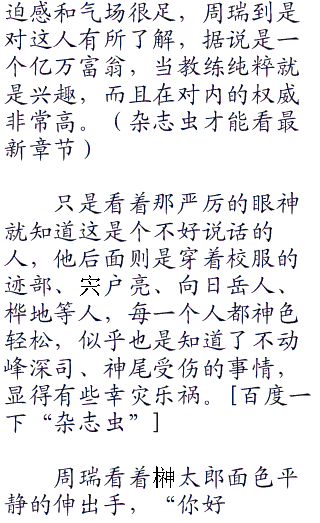 迫感和气场很足，周瑞到是
对这人有所了解，据说是一
个亿万富翁，当教练纯粹就
是兴趣，而且在对内的权威
非常高。（杂志虫才能看最
新章节）
只是看着那严厉的眼神
就知道这是个不好说话的
人，他后面则是穿着校服的
迹部、宍户亮、向日岳人、
桦地等人，每一个人都神色
轻松，似乎也是知道了不动
峰深司、神尾受伤的事情，
显得有些幸灾乐祸。[百度一
下“杂志虫”]
周瑞看着榊太郎面色平
静的伸出手，“你好